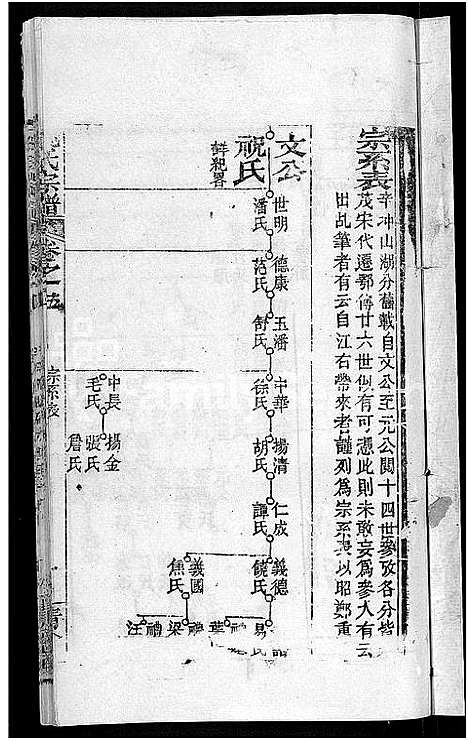 宗系表
辛冲山湖分舊載自文公至元公閱十四世參攷各分皆
茂宋代遷鄂傳廿六世似有可憑此則未敢妄為參入有云
出乩筆者有云自江右帶來者謹列為宗系表以昭鄭重
文公
祝氏
詳紀畧
世明
潘氏
德康
范氏
玉潘
舒氏
中華
徐氏
中長
毛氏
揚清
胡氏
揚金
張氏
詹氏
仁成
譚氏
義德
饒氏
義國
焦氏
易氏
禮
葉
禮
梁
禮
汪
氏宗譜
卷之五
宗系表